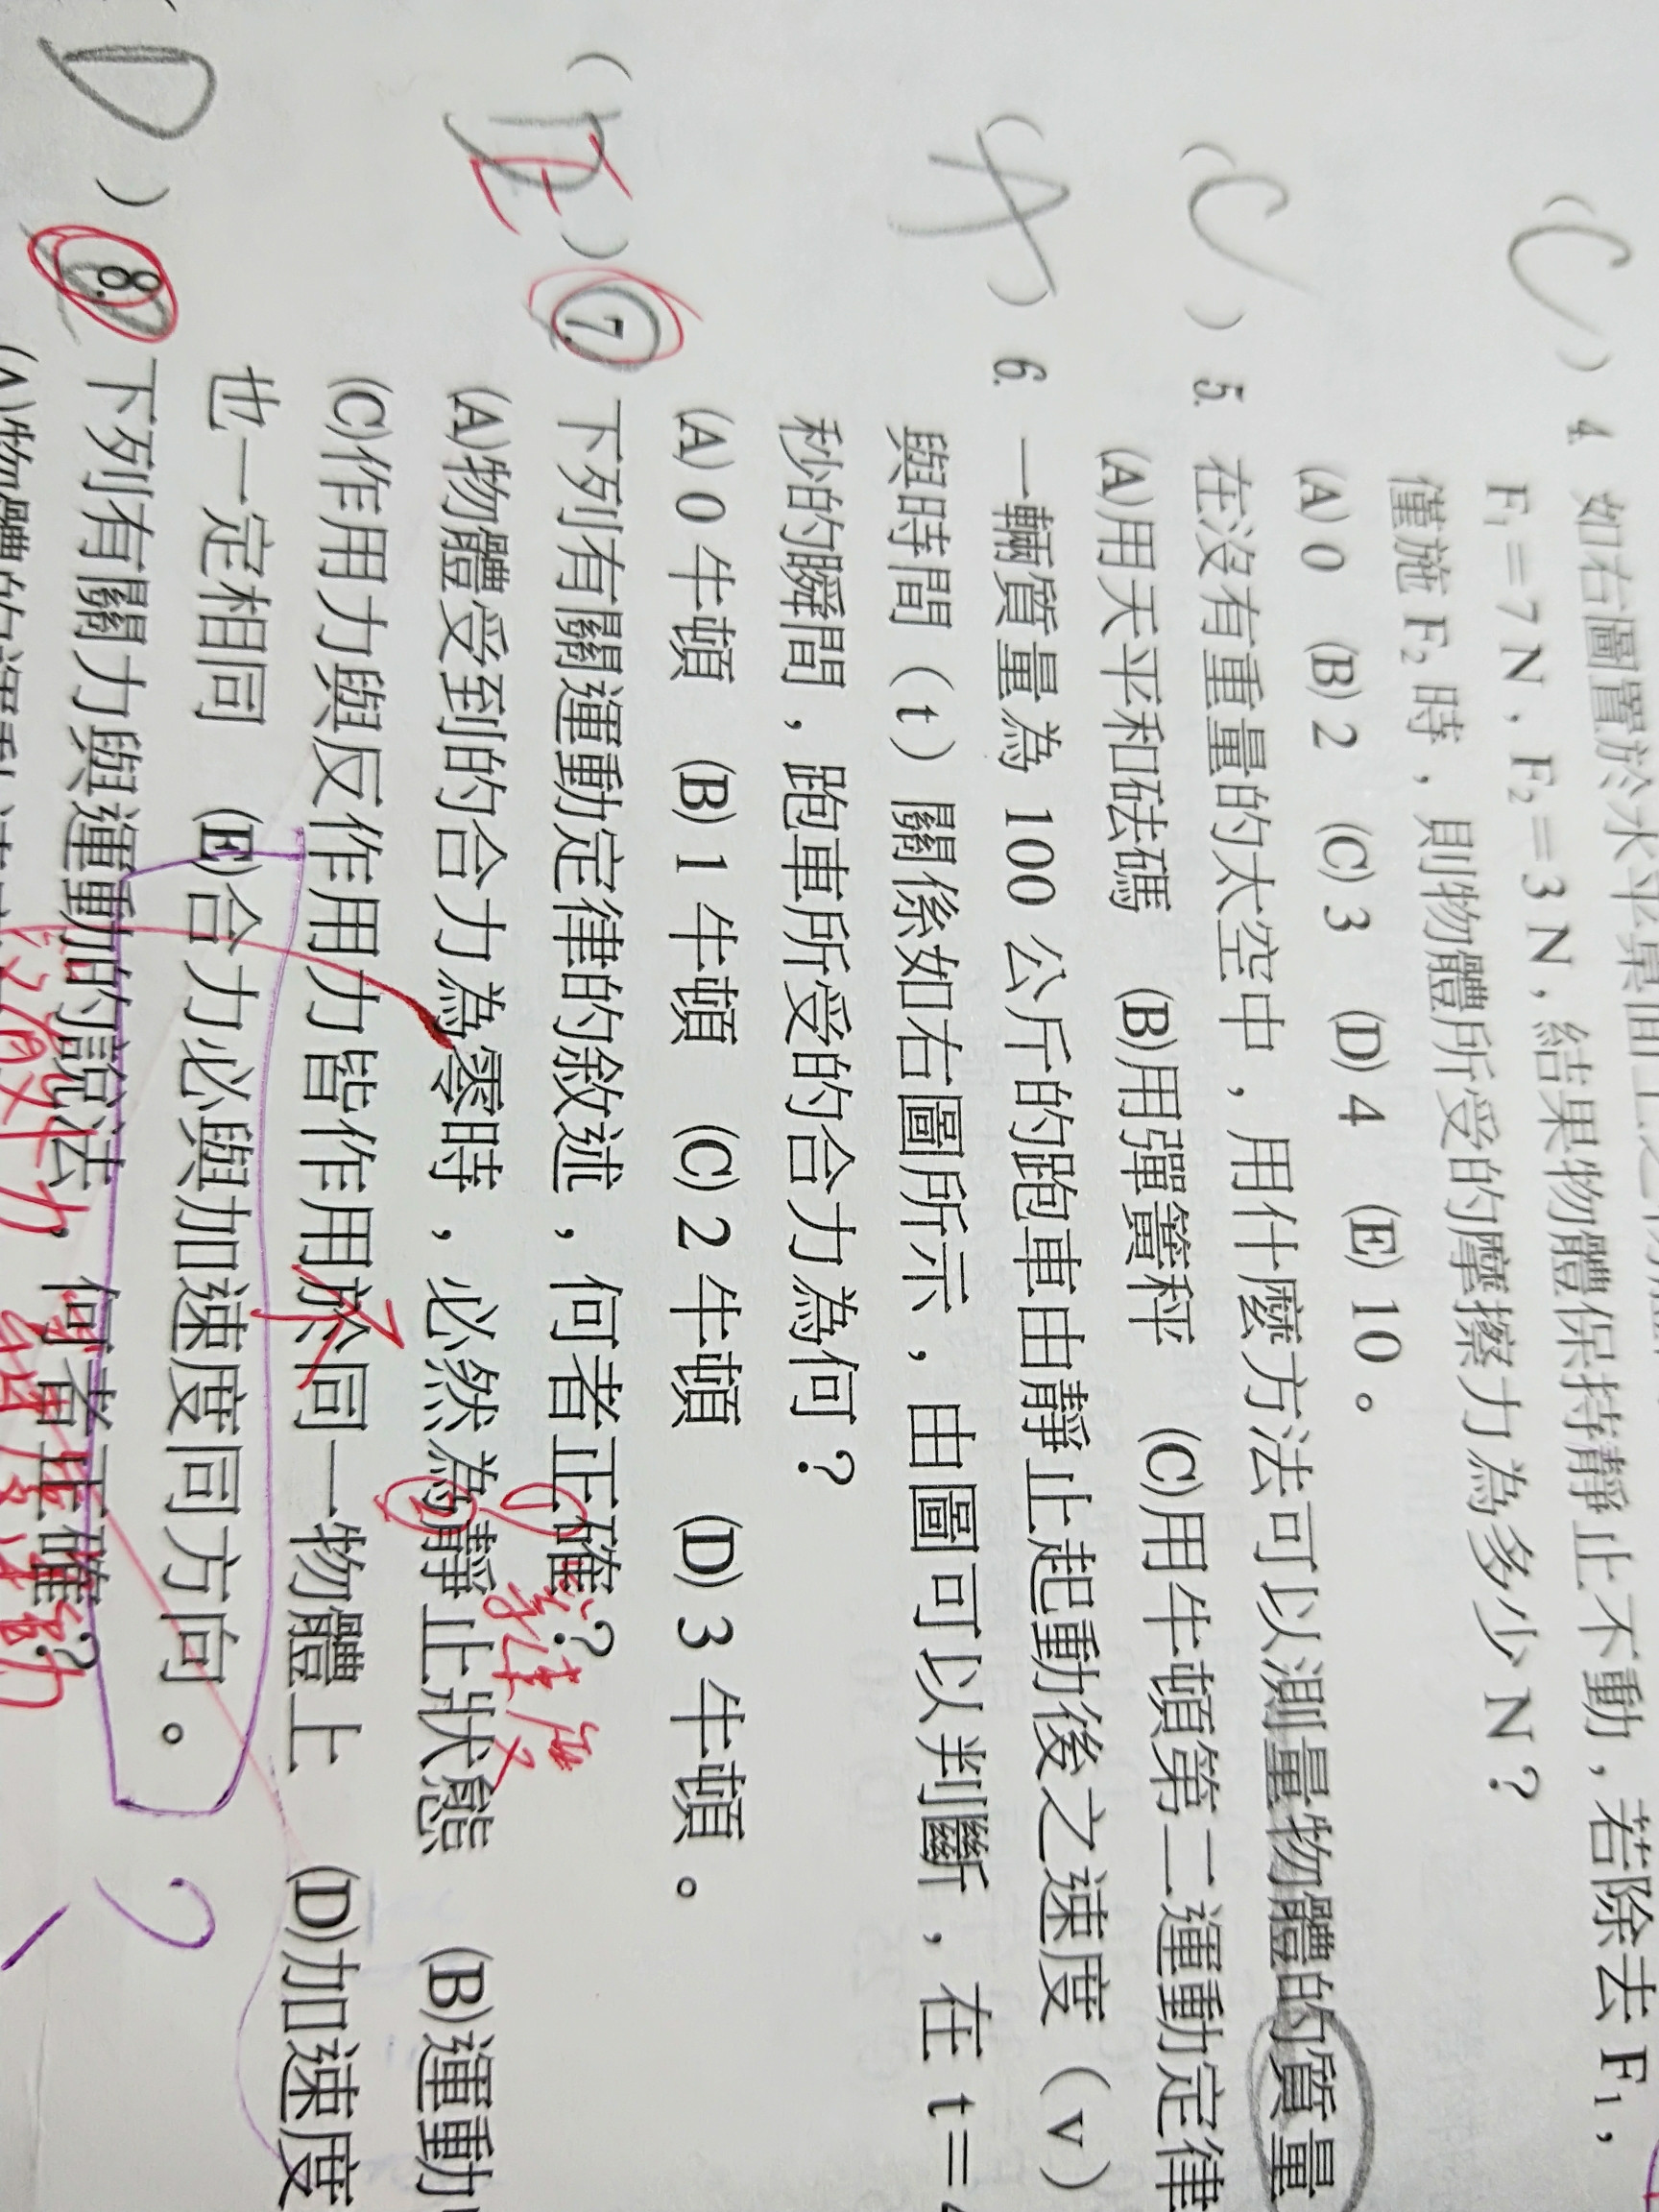 (C) 4. 如右圖置於水平桌面上之
F₁=7 N，F₂=3 N，結果物體保持靜止不動，若除去 F₁，
僅施 F₂ 時，則物體所受的摩擦力為多少 N？
(A) 0 (B) 2 (C) 3 (D) 4 (E) 10。
(C) 5. 在沒有重量的太空中，用什麼方法可以測量物體的質量
(A)用天平和砝碼 (B)用彈簧秤 (C)用牛頓第二運動定律
(A) 6. 一輛質量為 100 公斤的跑車由靜止起動後之速度（v）
與時間（t）關係如右圖所示，由圖可以判斷，在 t=
秒的瞬間，跑車所受的合力為何？
(A) 0 牛頓 (B) 1 牛頓 (C) 2 牛頓 (D) 3 牛頓。
(E) 7. 下列有關運動定律的敘述，何者正確？
(A)物體受到的合力為零時，必然為靜止狀態 (B)運動
(C)作用力與反作用力皆作用於同一物體上 (D)加速度
不
也一定相同 (E)合力必與加速度同方向。
?
D ) 8. 下列有關力與運動的說法，何者正確？
(A)物體的運動